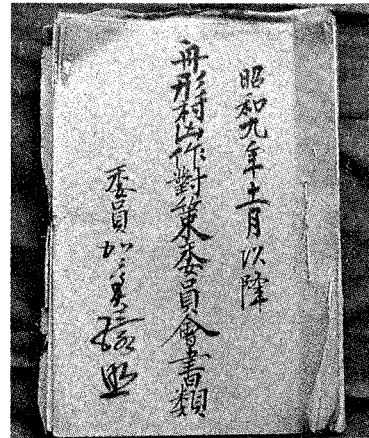 昭和九年十一月以降
舟形村凶作對策委員會書類
委員 加美